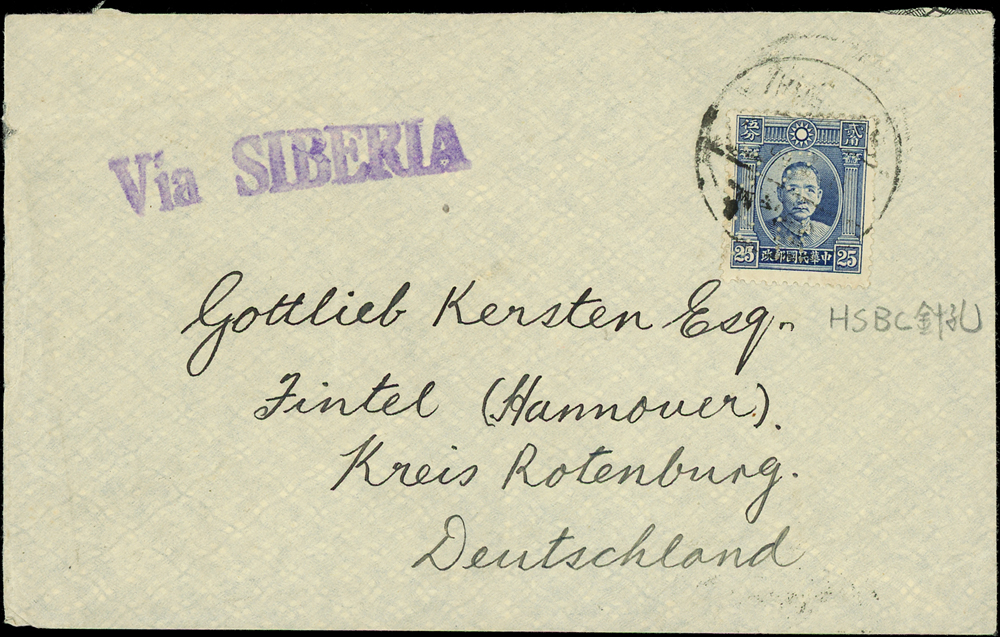 Via SIBERIA
伍分 貳角
25 政郵國民華中 25
Gottlieb Kersten Esq.
HSBC針孔
Fintel (Hannover).
Kreis Rotenburg.
Deutschland